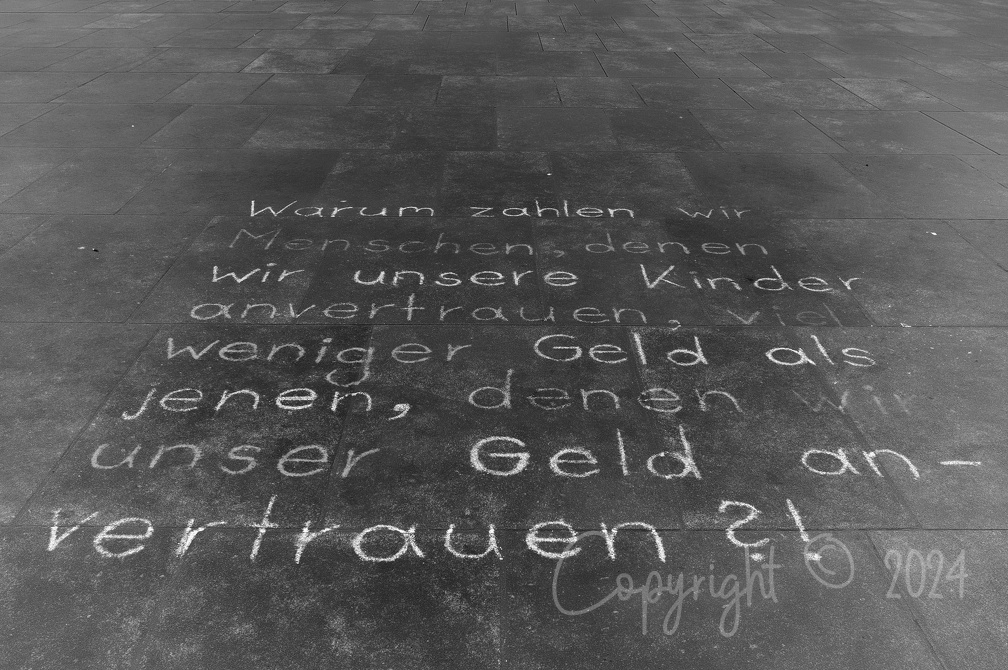 Warum zahlen wir
Menschen, denen
wir unsere Kinder
anvertrauen, viel
weniger Geld als
jenen, denen wir
unser Geld an-
vertrauen ?!
Copyright © 2024